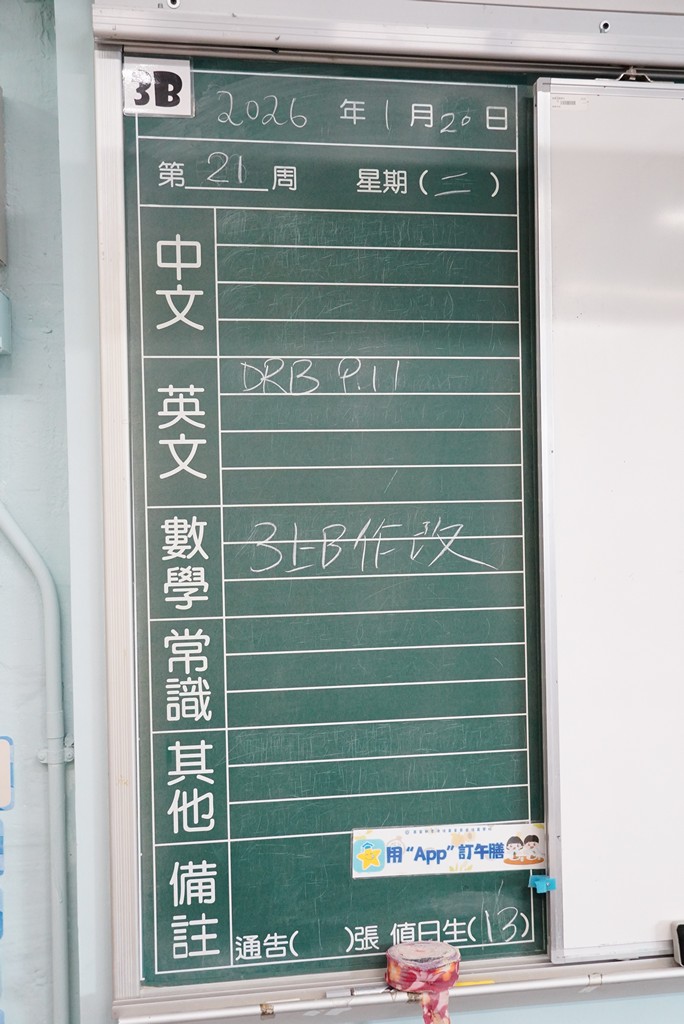 3B
2026 年 1 月 20 日
第 21 周 星期(二)
中文
英文 DRB P.11
數學 3上B作改
常識
其他
用“App”訂午膳
備註
通告( )張 值日生(13)